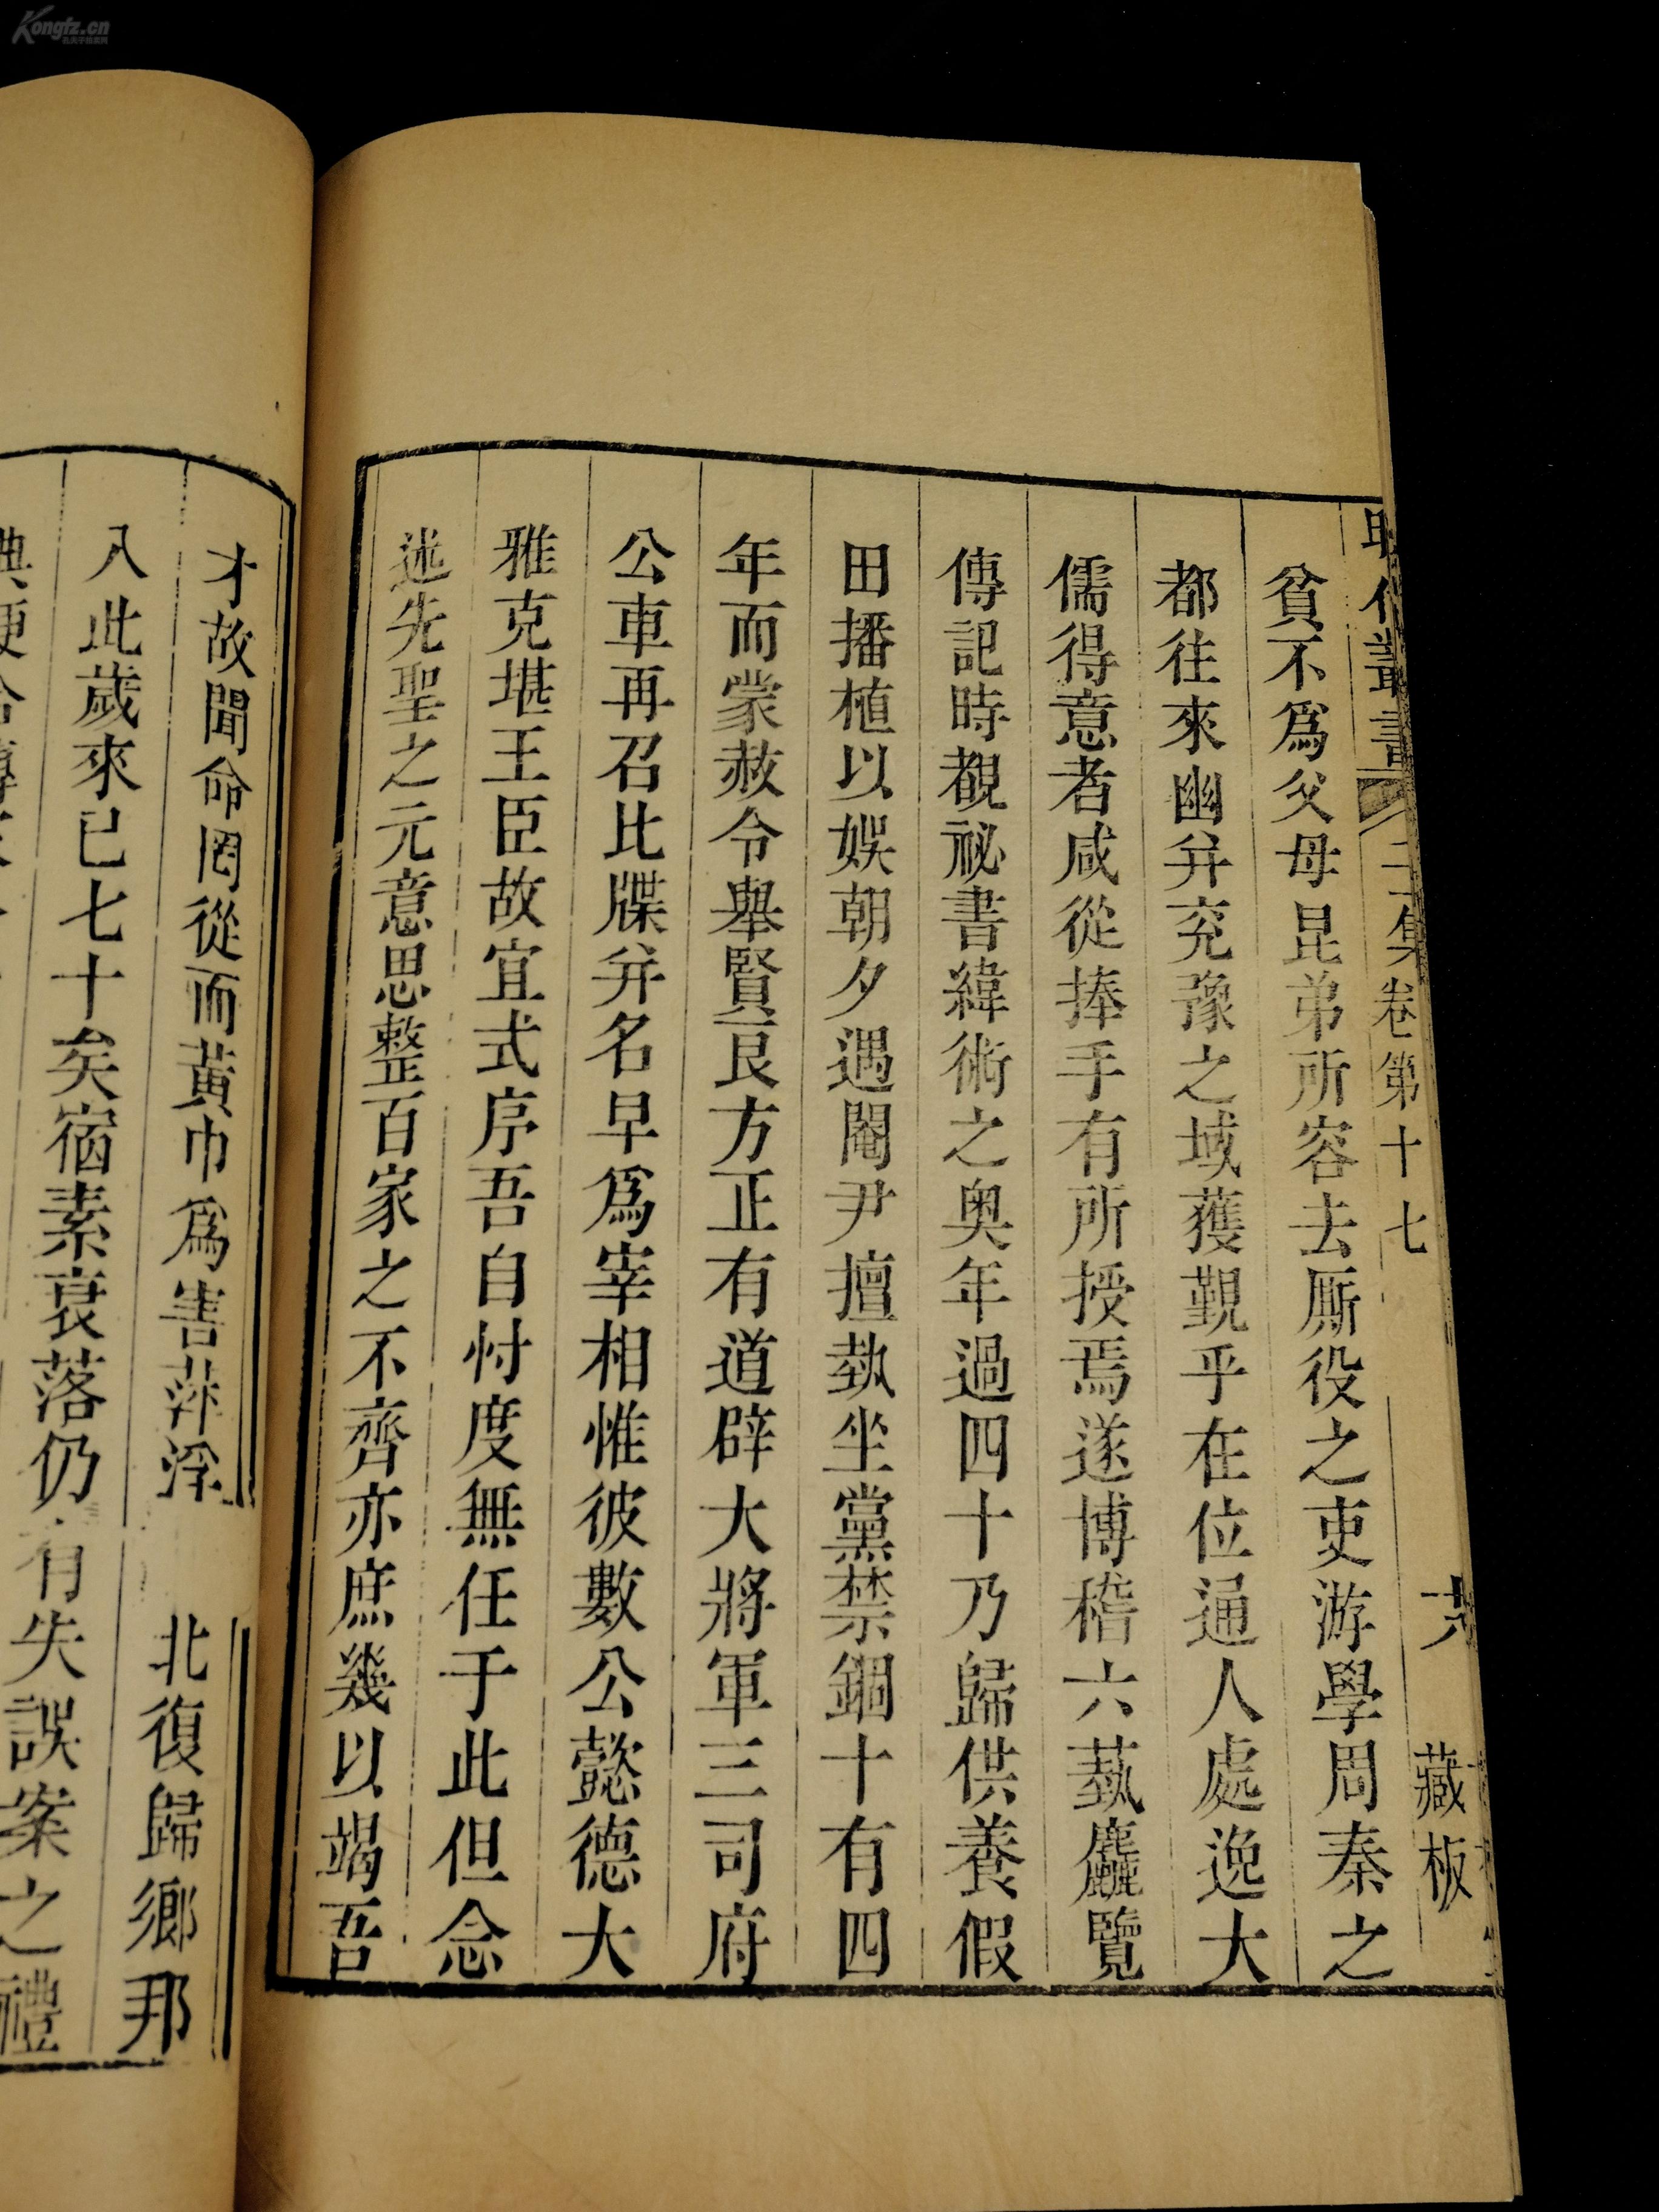 昭代叢書 二集卷第十七 六 藏板
貧不爲父母昆弟所容去厮役之吏游學周秦之
都往來幽并兖豫之域獲覲乎在位通人處逸大
儒得意者咸從捧手有所授焉遂博稽六蓺麤覽
傳記時覩祕書緯術之奥年過四十乃歸供養假
田播植以娛朝夕遇閹尹擅埶坐黨禁錮十有四
年而蒙赦令舉賢良方正有道辟大將軍三司府
公車再召比牒并名早爲宰相惟彼數公懿德大
雅克堪王臣故宜式序吾自忖度無任于此但念
述先聖之元意思整百家之不齊亦庶幾以竭吾
才故聞命罔從而黃巾爲害萍浮 北復歸鄉邦
入此歲來已七十矣宿素衰落仍有失誤案之禮
典便
Kongfz.cn